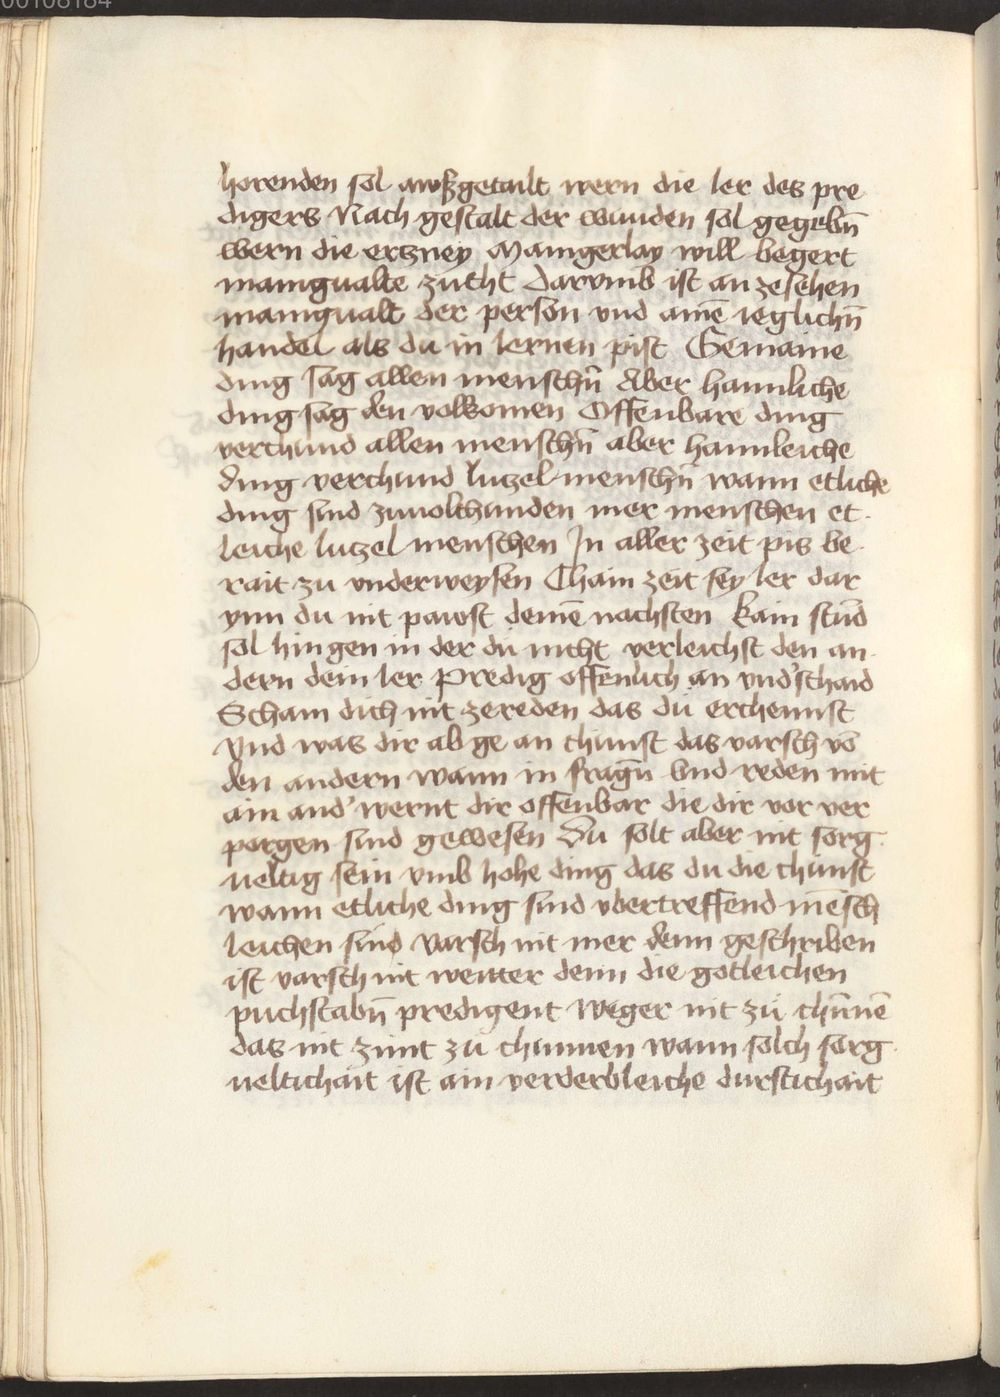 00108184
horenden sol awßgetailt wern die ler des pre
digers Nach gestalt der wunden sol gegebn̄
wern die ertzney Maingerlay will begert
manigualte zucht Darvmb ist an zesehen
manigualt der person vnd ainē ieglichn̄
handel als du in lernen pist Gemaine
ding sag allen menschn̄ Aber haimliche
ding sag den volkomen Offenbare ding
verchund allen menschn̄ aber haimleiche
ding verchund lutzel menschn̄ wann etliche
ding sind zuuolchunden mer menschen et
leiche lutzel menschen In aller zeit pis be
rait zu vnderweysen Chain zeit sey ler dar
ynn du nit pawst deinē nachsten kain stūd
sol hin gen in der du nicht verleichst den an
dern dein ler Predig offenlich an vnd'schaid
Scham dich nit zereden das du erchennst
Vnd was dir ab ge an chunst das varsch vō
den andern wann in fragn̄ vnd reden mit
ain and' wernt dir offenbar die dir vor ver
porgen sind gewesen Du solt aber nit sorg
ueltig sein vmb hohe ding das du die chunst
wann etliche ding sind vbertreffend mēsch
leichen sind varsch nit mer denn geschriben
ist varsch nit weitter denn die gotleichen
puchstabn̄ predigent Weger nit zu chūnē
das nit zimt zu chunnen wann solch sorg
ueltichait ist ain verderbleiche durstichait